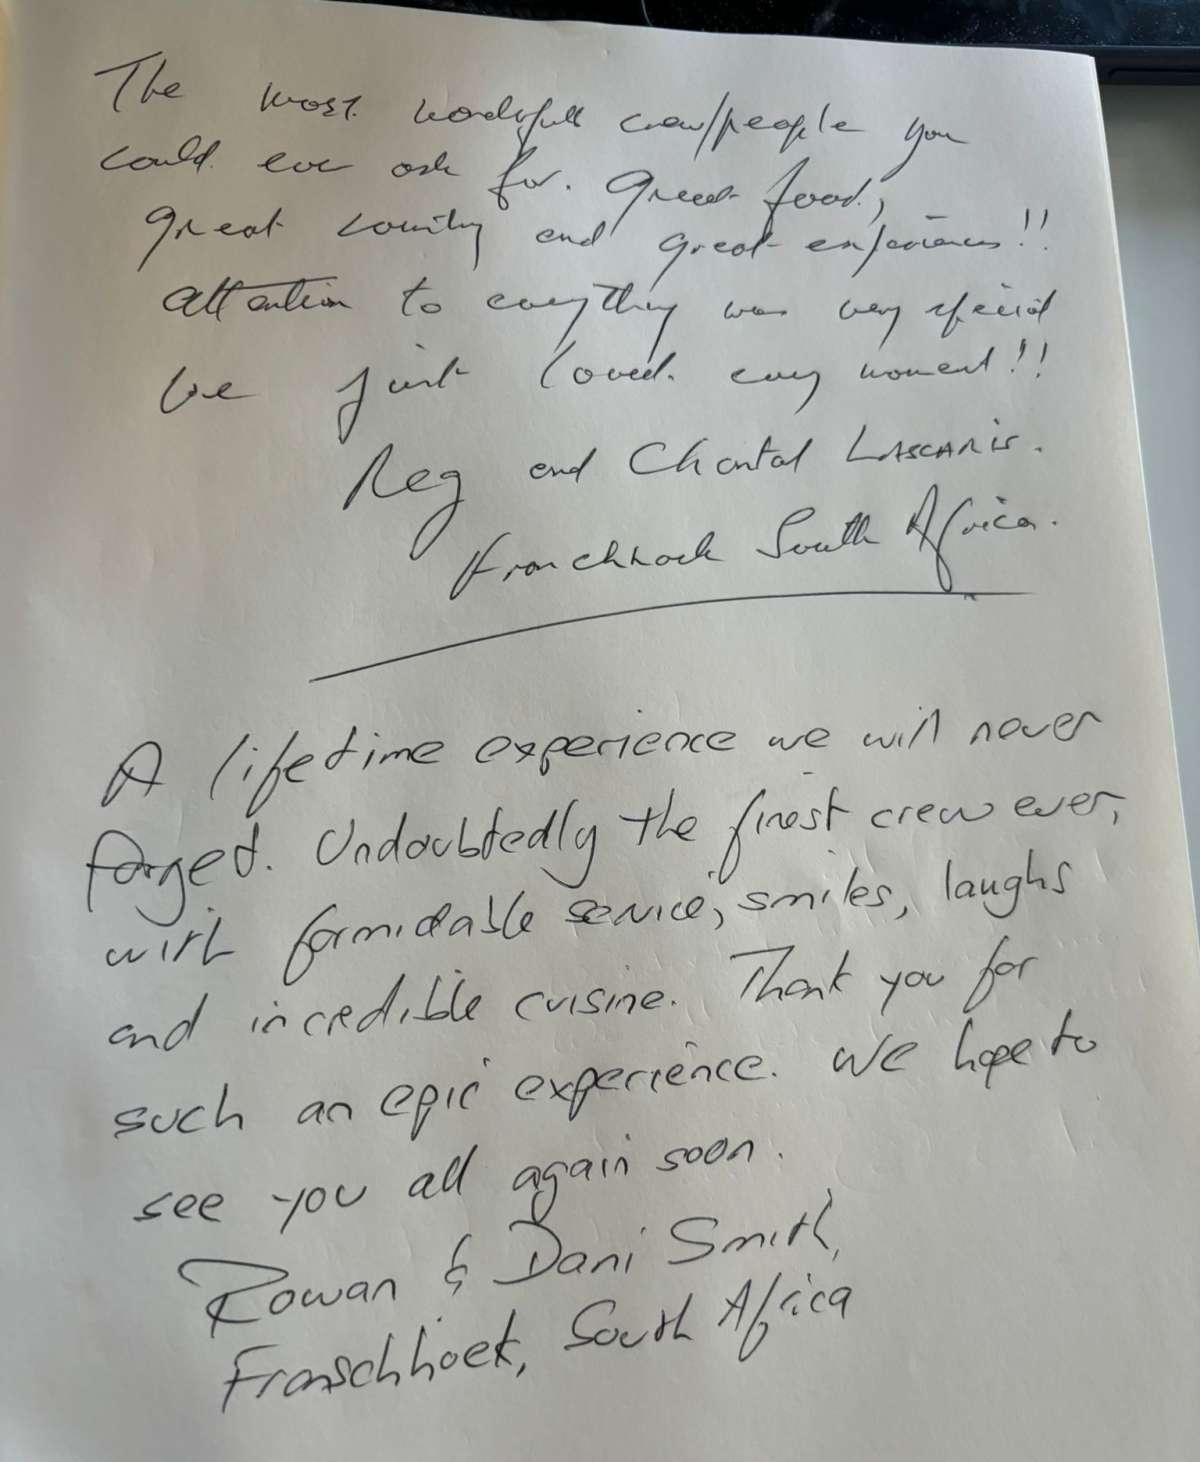 The most wonderfull crew/people you
could ever ask for. Great food,
great country and great experiences!!
Attention to everything was very special
we just loved every moment!!
Reg and Chantal LASCARIS.
Franchhoek South Africa.
A lifetime experience we will never
forget. Undoubtedly the finest crew ever,
with formidable service, smiles, laughs
and incredible cuisine. Thank you for
such an epic experience. We hope to
see you all again soon.
Rowan & Dani Smith,
Franschhoek, South Africa